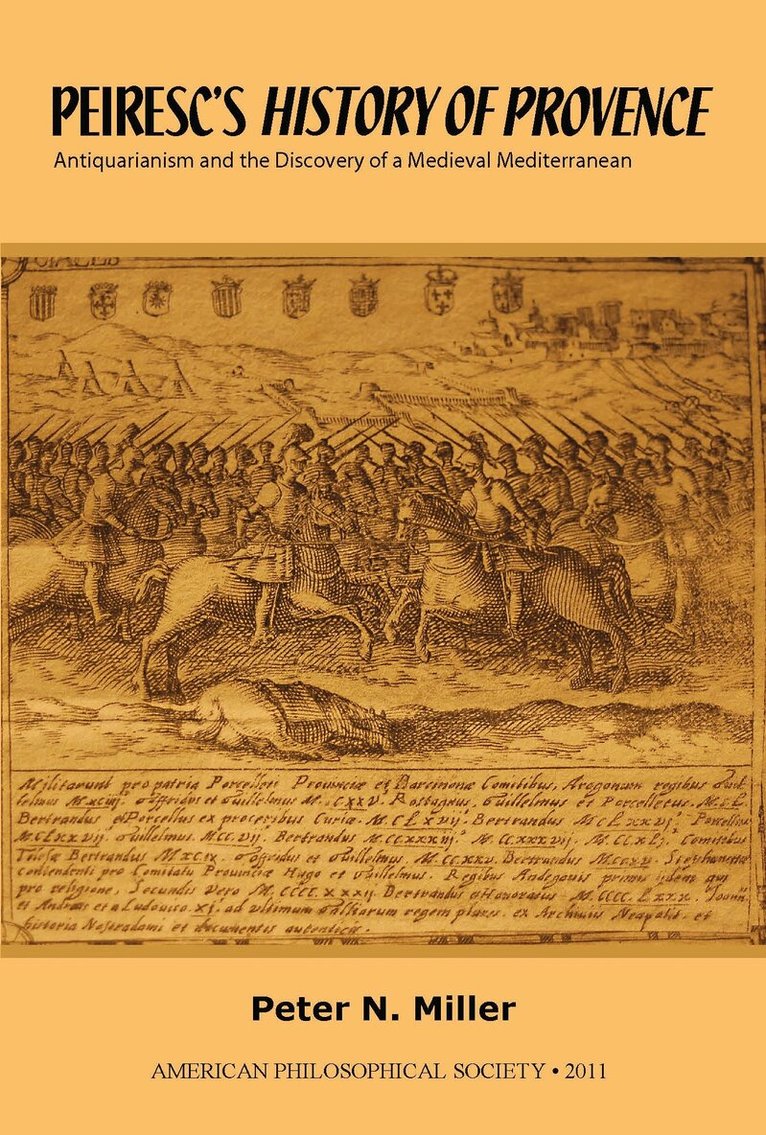 PEIRESC'S HISTORY OF PROVENCE
Antiquarianism and the Discovery of a Medieval Mediterranean
Militarunt pro patria Porcelleti Provinciæ et Barcinonæ Comitibus, Aragonum regibus
M.CXXV. Rostagnus, Guillelmus et Porcelletus.
Bertrandus et Porcellus ex proceribus Curiæ. M.CLXVIJ. Bertrandus M.CLXXVJ. Porcellus
M.CLXXVIJ. Guillelmus. M.CC.VIJ. Bertrandus M.CCXXXIIJ. M.CCXXXVIJ. M.CCXLJ. Comitibus
Bertrandus MXCIX. Goffridus et Guillelmus. M.CCXXV. Bertrandus
pro Comitatu Provinciæ Hugo et Guillelmus. Regibus Andegavis primis
pro religione, Secundis vero M.CCCC.XXXIJ. Bertrandus et Honoratus. M.CCCC.LXXX.
et Andreas et a Ludovico XJ. ad ultimum Galliarum regem plures. ex Archiviis Neapolit. et
historia Nostradami et documentis autenticis.
Peter N. Miller
AMERICAN PHILOSOPHICAL SOCIETY • 2011